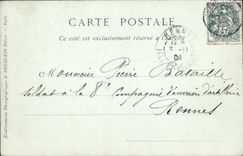 CARTE POSTALE
Ce côté est exclusivement réservé à
Etablissements Photographiques de NEURDEIN Frères. — Paris
RENN
04
Monsieur Pierre Bataille
soldat à la 8e Compagnie d'ouvriers d'artillerie
Rennes